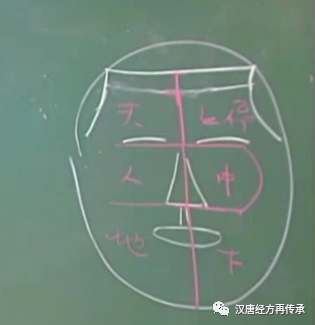 天 上停
人 中
地 下
汉唐经方再传承